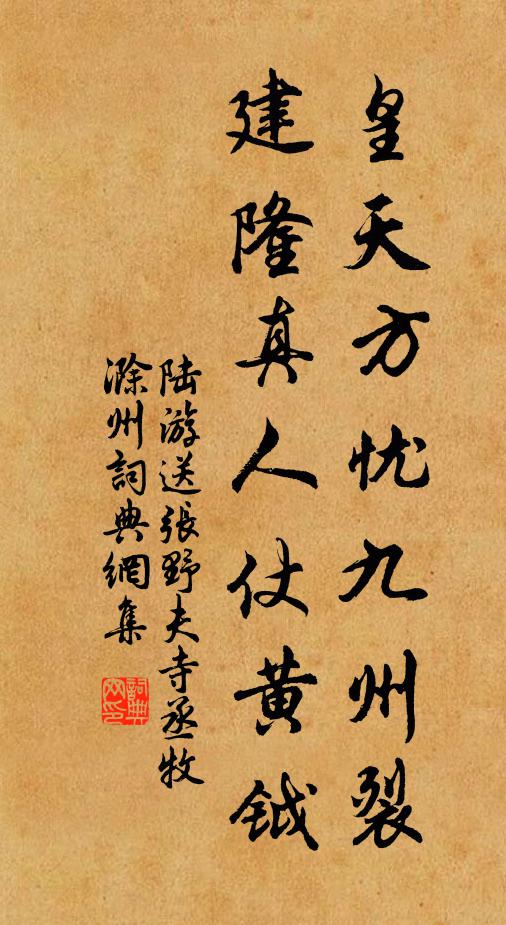 皇天方忧九州裂
建隆真人仗黄钺
陆游送張野夫寺丞牧
滁州詞典網集
詞典
网印